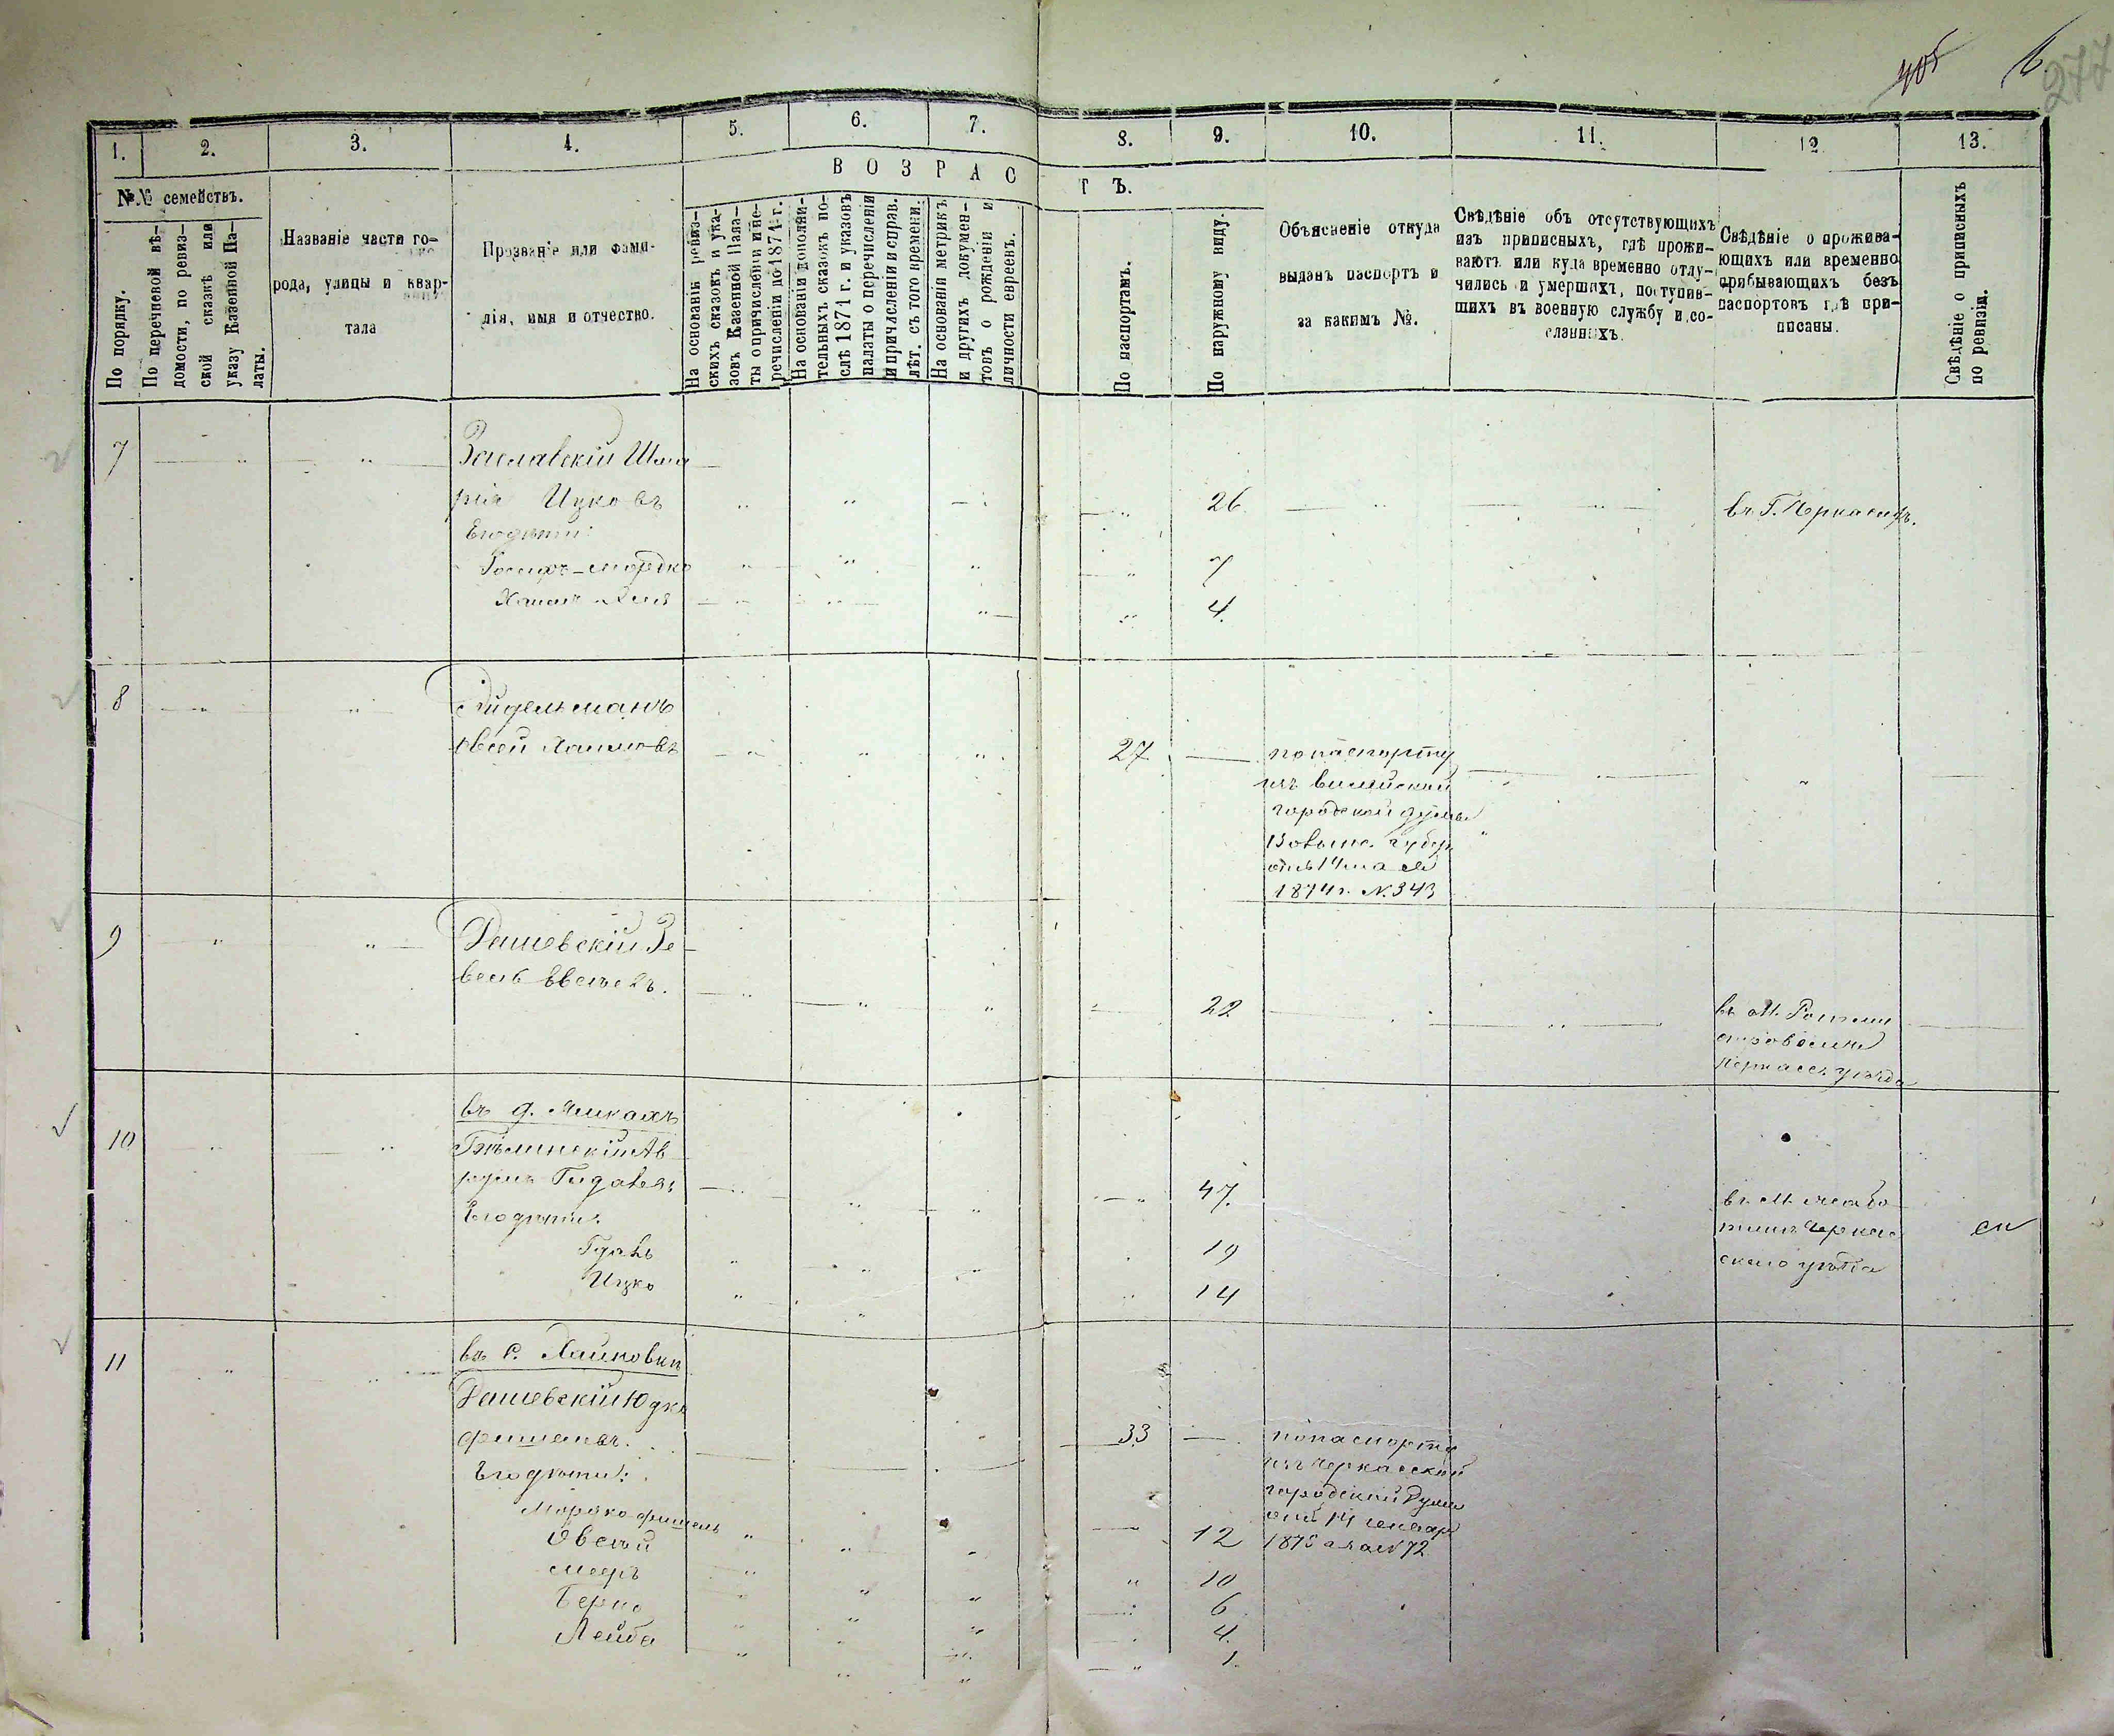 277
1.
2.
3.
4.
5.
6.
7.
8.
9.
10.
11.
12
13.
ВОЗРАСТЪ.
№№ семействъ.
По порядку.
По перечневой вѣ-
домости, по ревиз-
ской сказкѣ или
указу Казенной Па-
латы.
Названіе части го-
рода, улицы и квар-
тала
Прозваніе или фами-
лія, имя и отчество.
На основаніи ревиз-
скихъ сказокъ и ука-
зовъ Казенной Пала-
ты о причисленіи и пе-
речисленіи до 1874 г.
На основаніи дополни-
тельныхъ сказокъ по-
слѣ 1874 г. и указовъ
палаты о перечисленіи
и причисленіи и справ.
лѣт. съ того времени.
На основаніи метрикъ
и другихъ докумен-
товъ о рожденіи и
личности евреевъ.
По паспортамъ.
По наружному виду.
Объясненіе откуда
выданъ паспортъ и
за какимъ №.
Свѣдѣніе объ отсутствующихъ
изъ приписныхъ, гдѣ прожи-
ваютъ или куда временно отлу-
чились и умершихъ, поступив-
шихъ въ военную службу и со-
сланныхъ.
Свѣдѣніе о прожива-
ющихъ или временно
прибывающихъ безъ
паспортовъ гдѣ при-
писаны.
Свѣдѣніе о приписныхъ
по ревизіи.
7
Заславскій Шма
рія Ицковъ
26
въ Г. Черкасахъ.
Его дѣти:
Іосифъ-Мордко
7
Хаимъ
4.
8
Эйдельманъ
Овсей Хаимовъ
27
по паспорту
изъ
городской думы
Волынс. губер
отъ 14 мая
1874 г. №. 343
9
Рашевскій Зе-
вель
22
въ М.
Черкасс. уѣзда
10
въ д.
Бѣлинскій Ав
румъ Гидалевъ
47.
въ М.
Черкас
скаго уѣзда
Его дѣти:
19
Ицко
14
11
въ с. Хацковкѣ
Рашевскій Юдко
Фишелевъ.
33
по паспорту
изъ Черкасской
городской Думы
отъ 14 января
1875 72
Его дѣти:
Мордко фишель
12
Овсей
10
Мееръ
6
Берко
4.
Лейба
1.